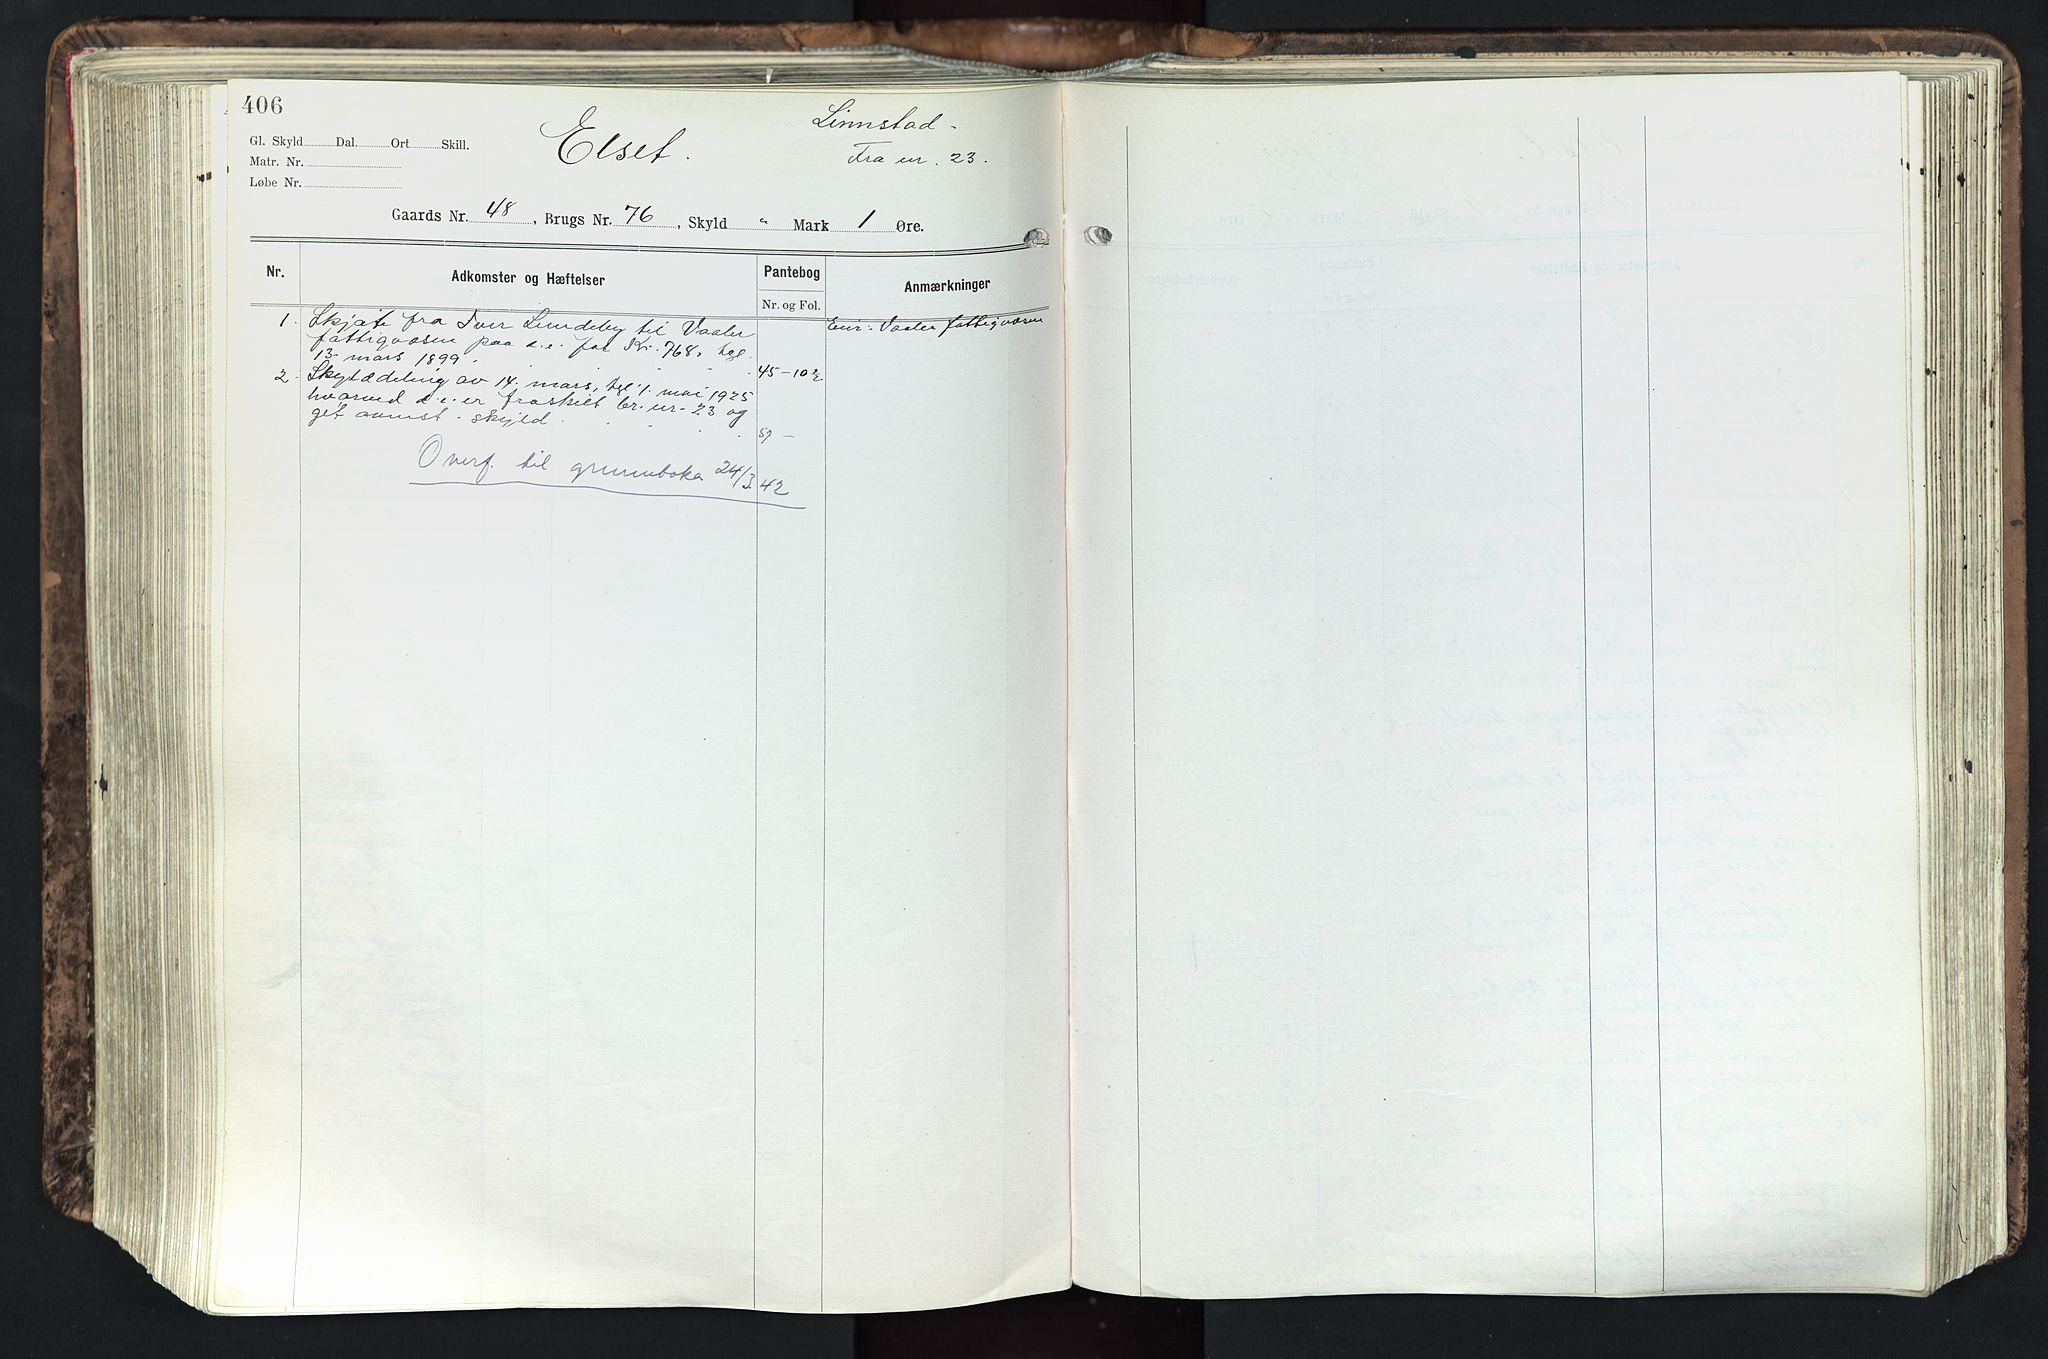 406
Gl. Skyld Dal. Ort Skill.
Matr. Nr.
Løbe Nr.
Elset.
Linnstad -
Fra nr. 23.
Gaards Nr. 48, Brugs Nr. 76, Skyld " Mark 1 Øre.
Nr. Adkomster og Hæftelser Pantebog Anmærkninger
Nr. og Fol.
1. Skjøte fra Iver Lundeby til Vaaler Eier: Vaaler fattigvæsen
fattigvæsen paa d.e. for Kr. 768, tgl.
13 mars 1899. 45-102
2. Skylddeling av 14. mars, tgl. 1. mai 1925
hvorved d.e. er fraskilt br. nr. 23 og
git avmst. skyld. 57 -
Overf. til grunnboka 24/3.42